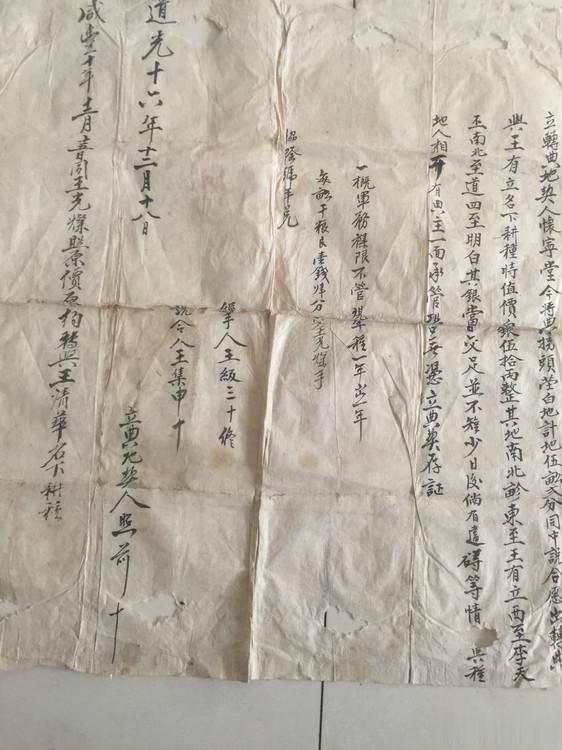 立轉典地契人懷寧堂今將典拐頭塋白地計地伍畝弍分同中說合愿出轉典
與王有立名下耕種時值價銀伍拾兩整其地南北畛東至王有立西至李天
玉南北至道四至明白其銀當交足並不短少日後倘有違碍等情 與種
地人相干有典主一面承管恐後無憑立典契存証
一概軍務雜限不管現年種一年出一年
每畝干粮艮壹錢肆分 王光燦手
協發號平兌
經手人王級三十修
說合人王集中十
立典地契人照前十
道光十六年十二月十八日
咸豐十年十二月 日同王光燦照原價原約轉與王清華名下耕種